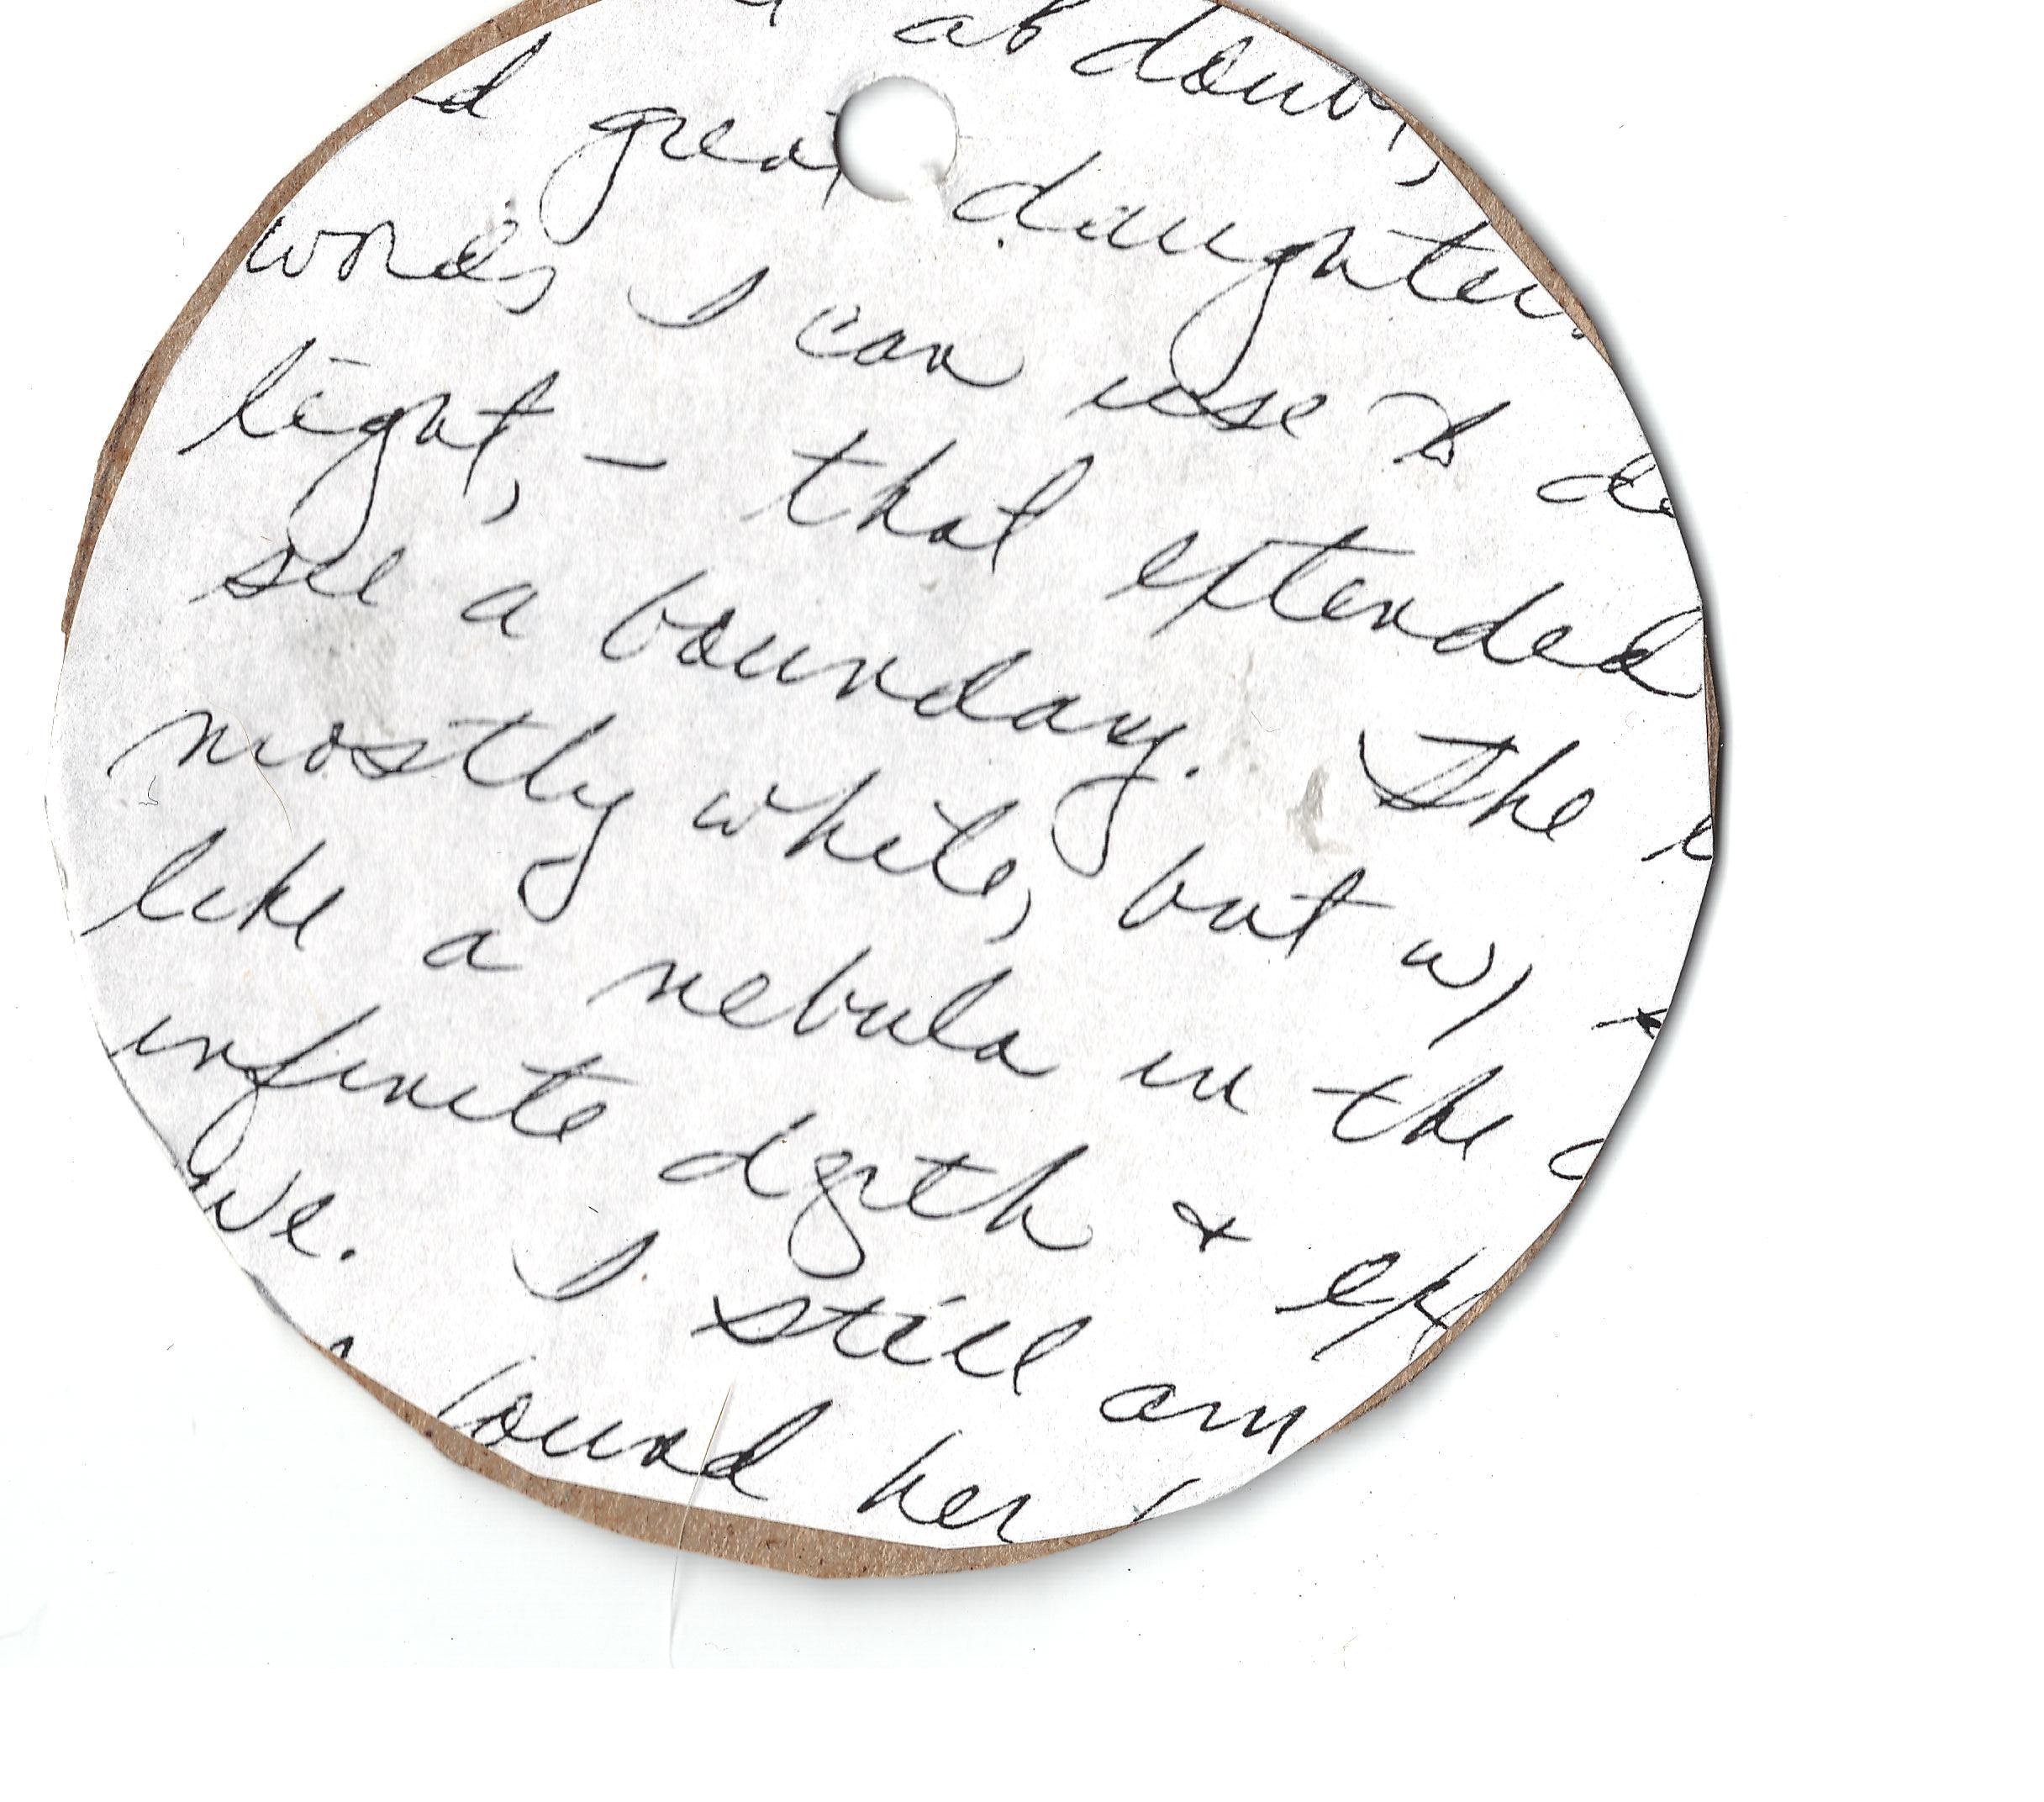 ab doubt,
d great daughter
words I can use to de
light, — that extended
see a boundary. The
mostly white, but w/ s
like a nebula in the
infinite depth & ex
we. I still am
ound her